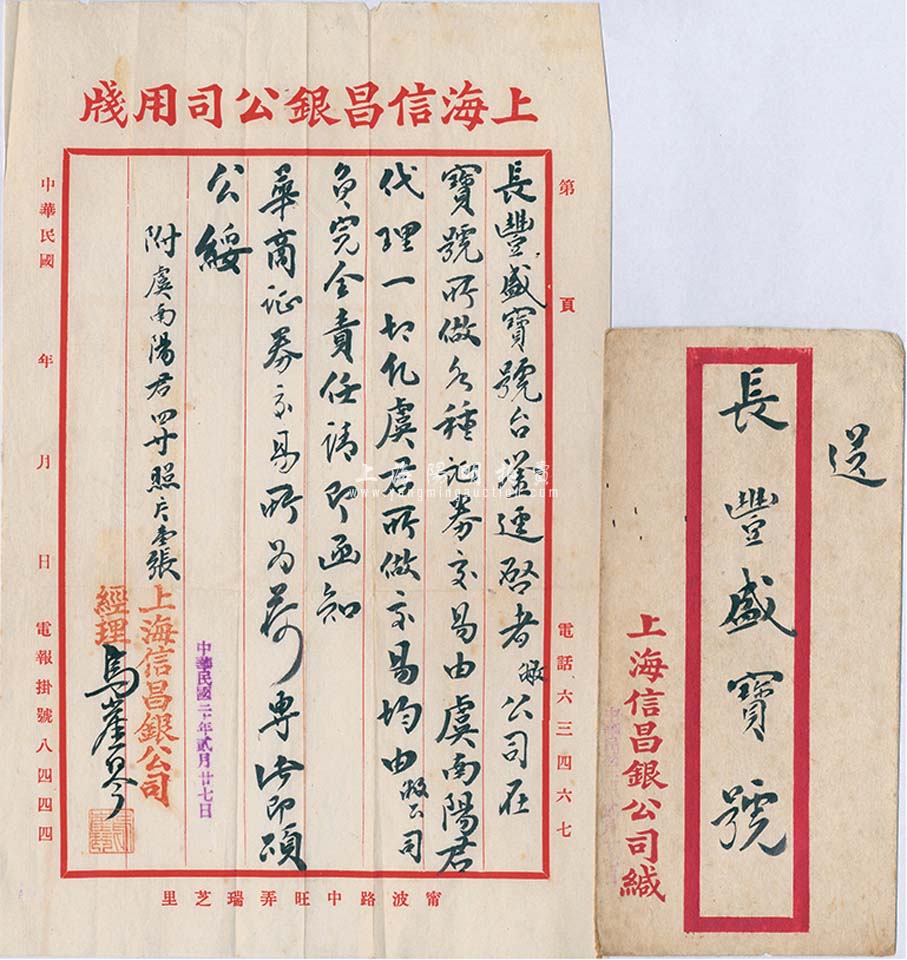 上海信昌銀公司用牋
第　頁
電話、六三四六七
長豐盛寶號台鑒逕啓者敝公司在
寶號所做各種証券交易由虞南陽君
代理一切凡虞君所做交易均由敝公司
負完全責任請即函知
華商证券交易所為荷專此即頌
公綏
附虞南陽君四寸照片壹張
中華民國二十年貳月廿七日
上海信昌銀公司
經理
中華民國　年　月　日
電報掛號八四四四
甯波路中旺弄瑞芝里
送
長豐盛寶號
上海信昌銀公司緘
上海陽明拍賣
www.yangmingauction.com